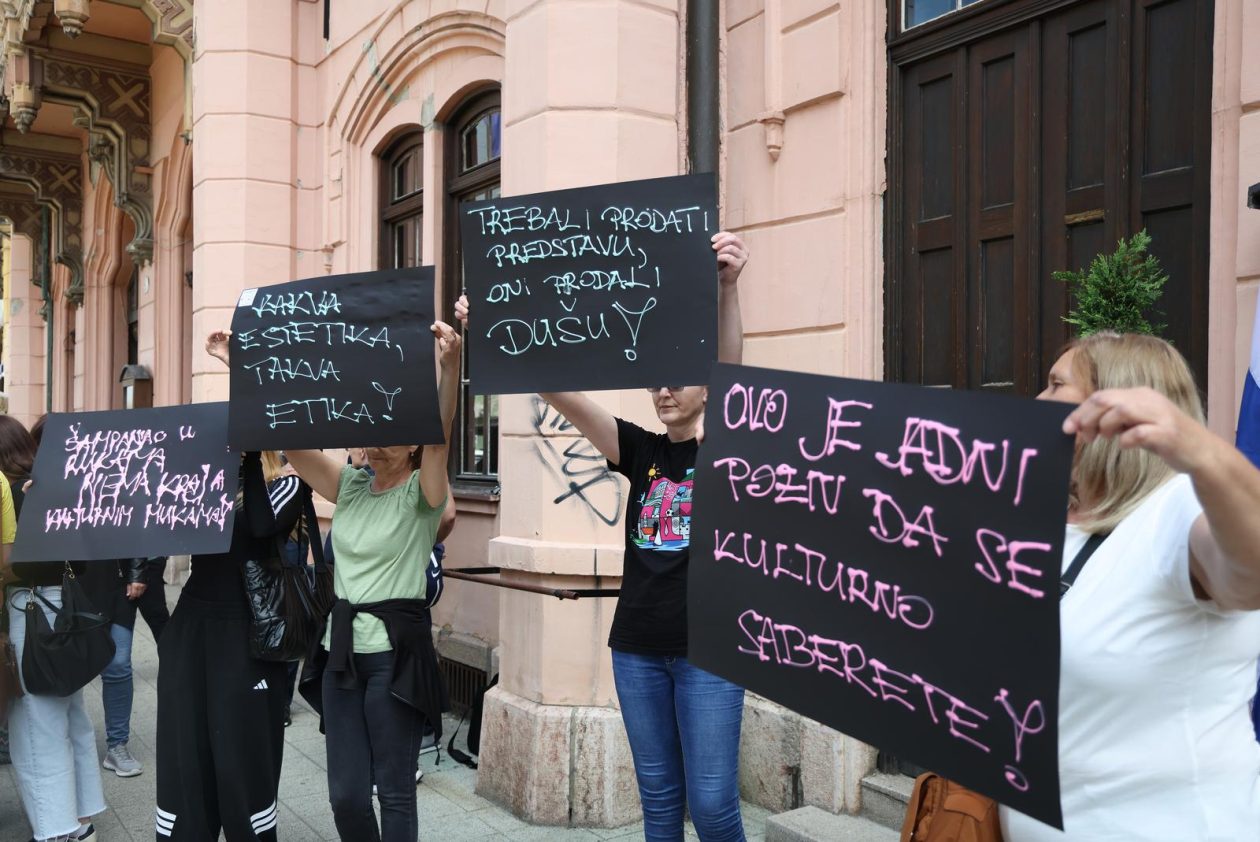 ŠAMPANJAC U
RUKAMA
NEMA KRAJA
KULTURNIM MUKAMA!
KAKVA
ESTETIKA,
TAKVA
ETIKA!
TREBALI PRODATI
PREDSTAVU,
ONI PRODALI
DUŠU!
OVO JE JADNI
POZIV DA SE
KULTURNO
SABERETE!